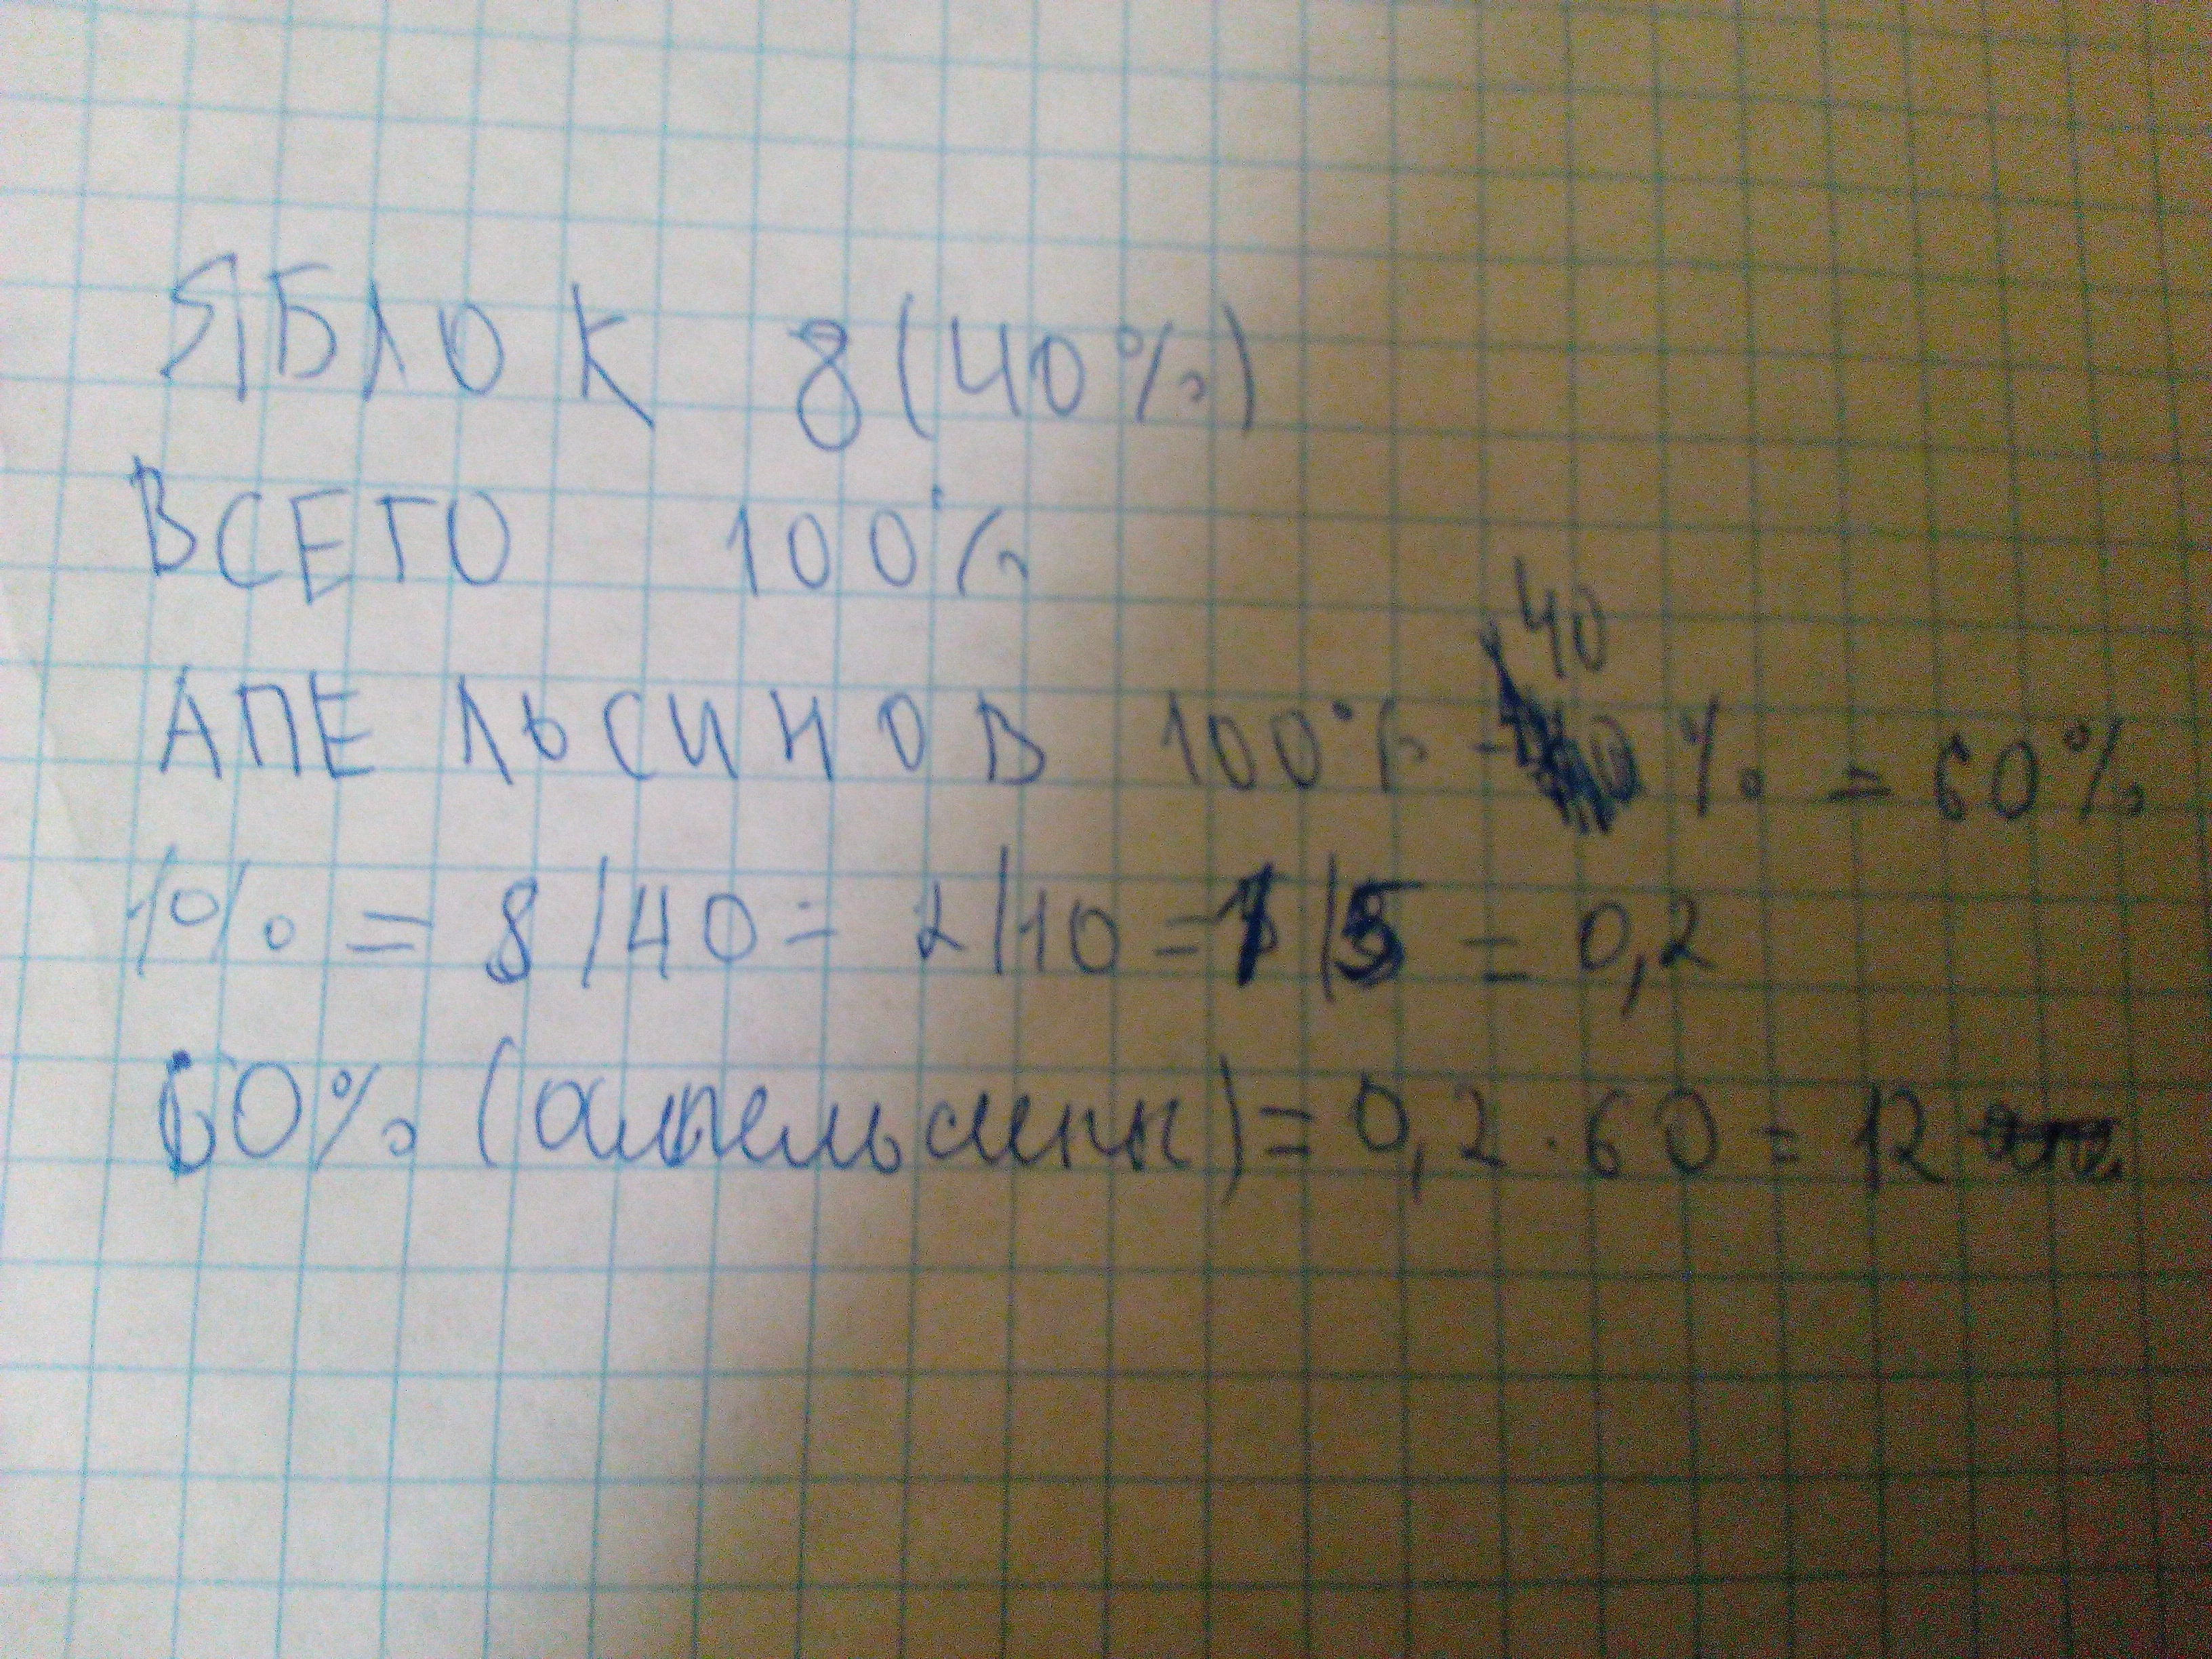 ЯБЛОК 8 (40%)
ВСЕГО 100%
АПЕЛЬСИНОВ 100% - 40% = 60%
1% = 8/40 = 2/10 = 1/5 = 0,2
60% (апельсины) = 0,2 · 60 = 12